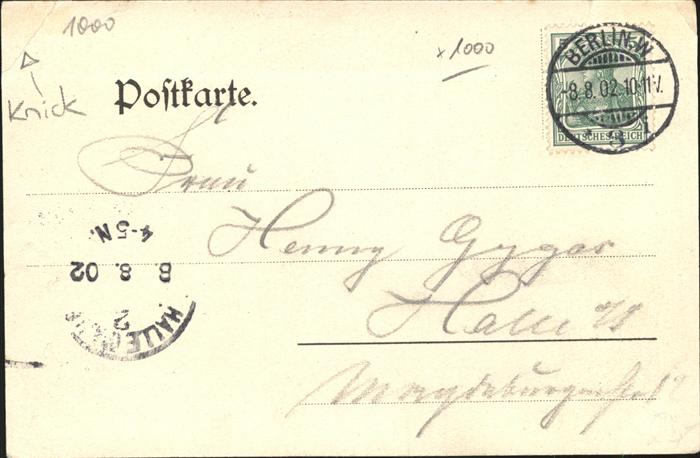 1000
x 1000
Knick
Postkarte.
BERLIN.W.
-8.8.02.10-11V.
DEUTSCHES REICH
Frau
Henny Gygas
Halle a/S
Magdeburgerstr.
HALLE
2
8. 8. 02
4-5 N.